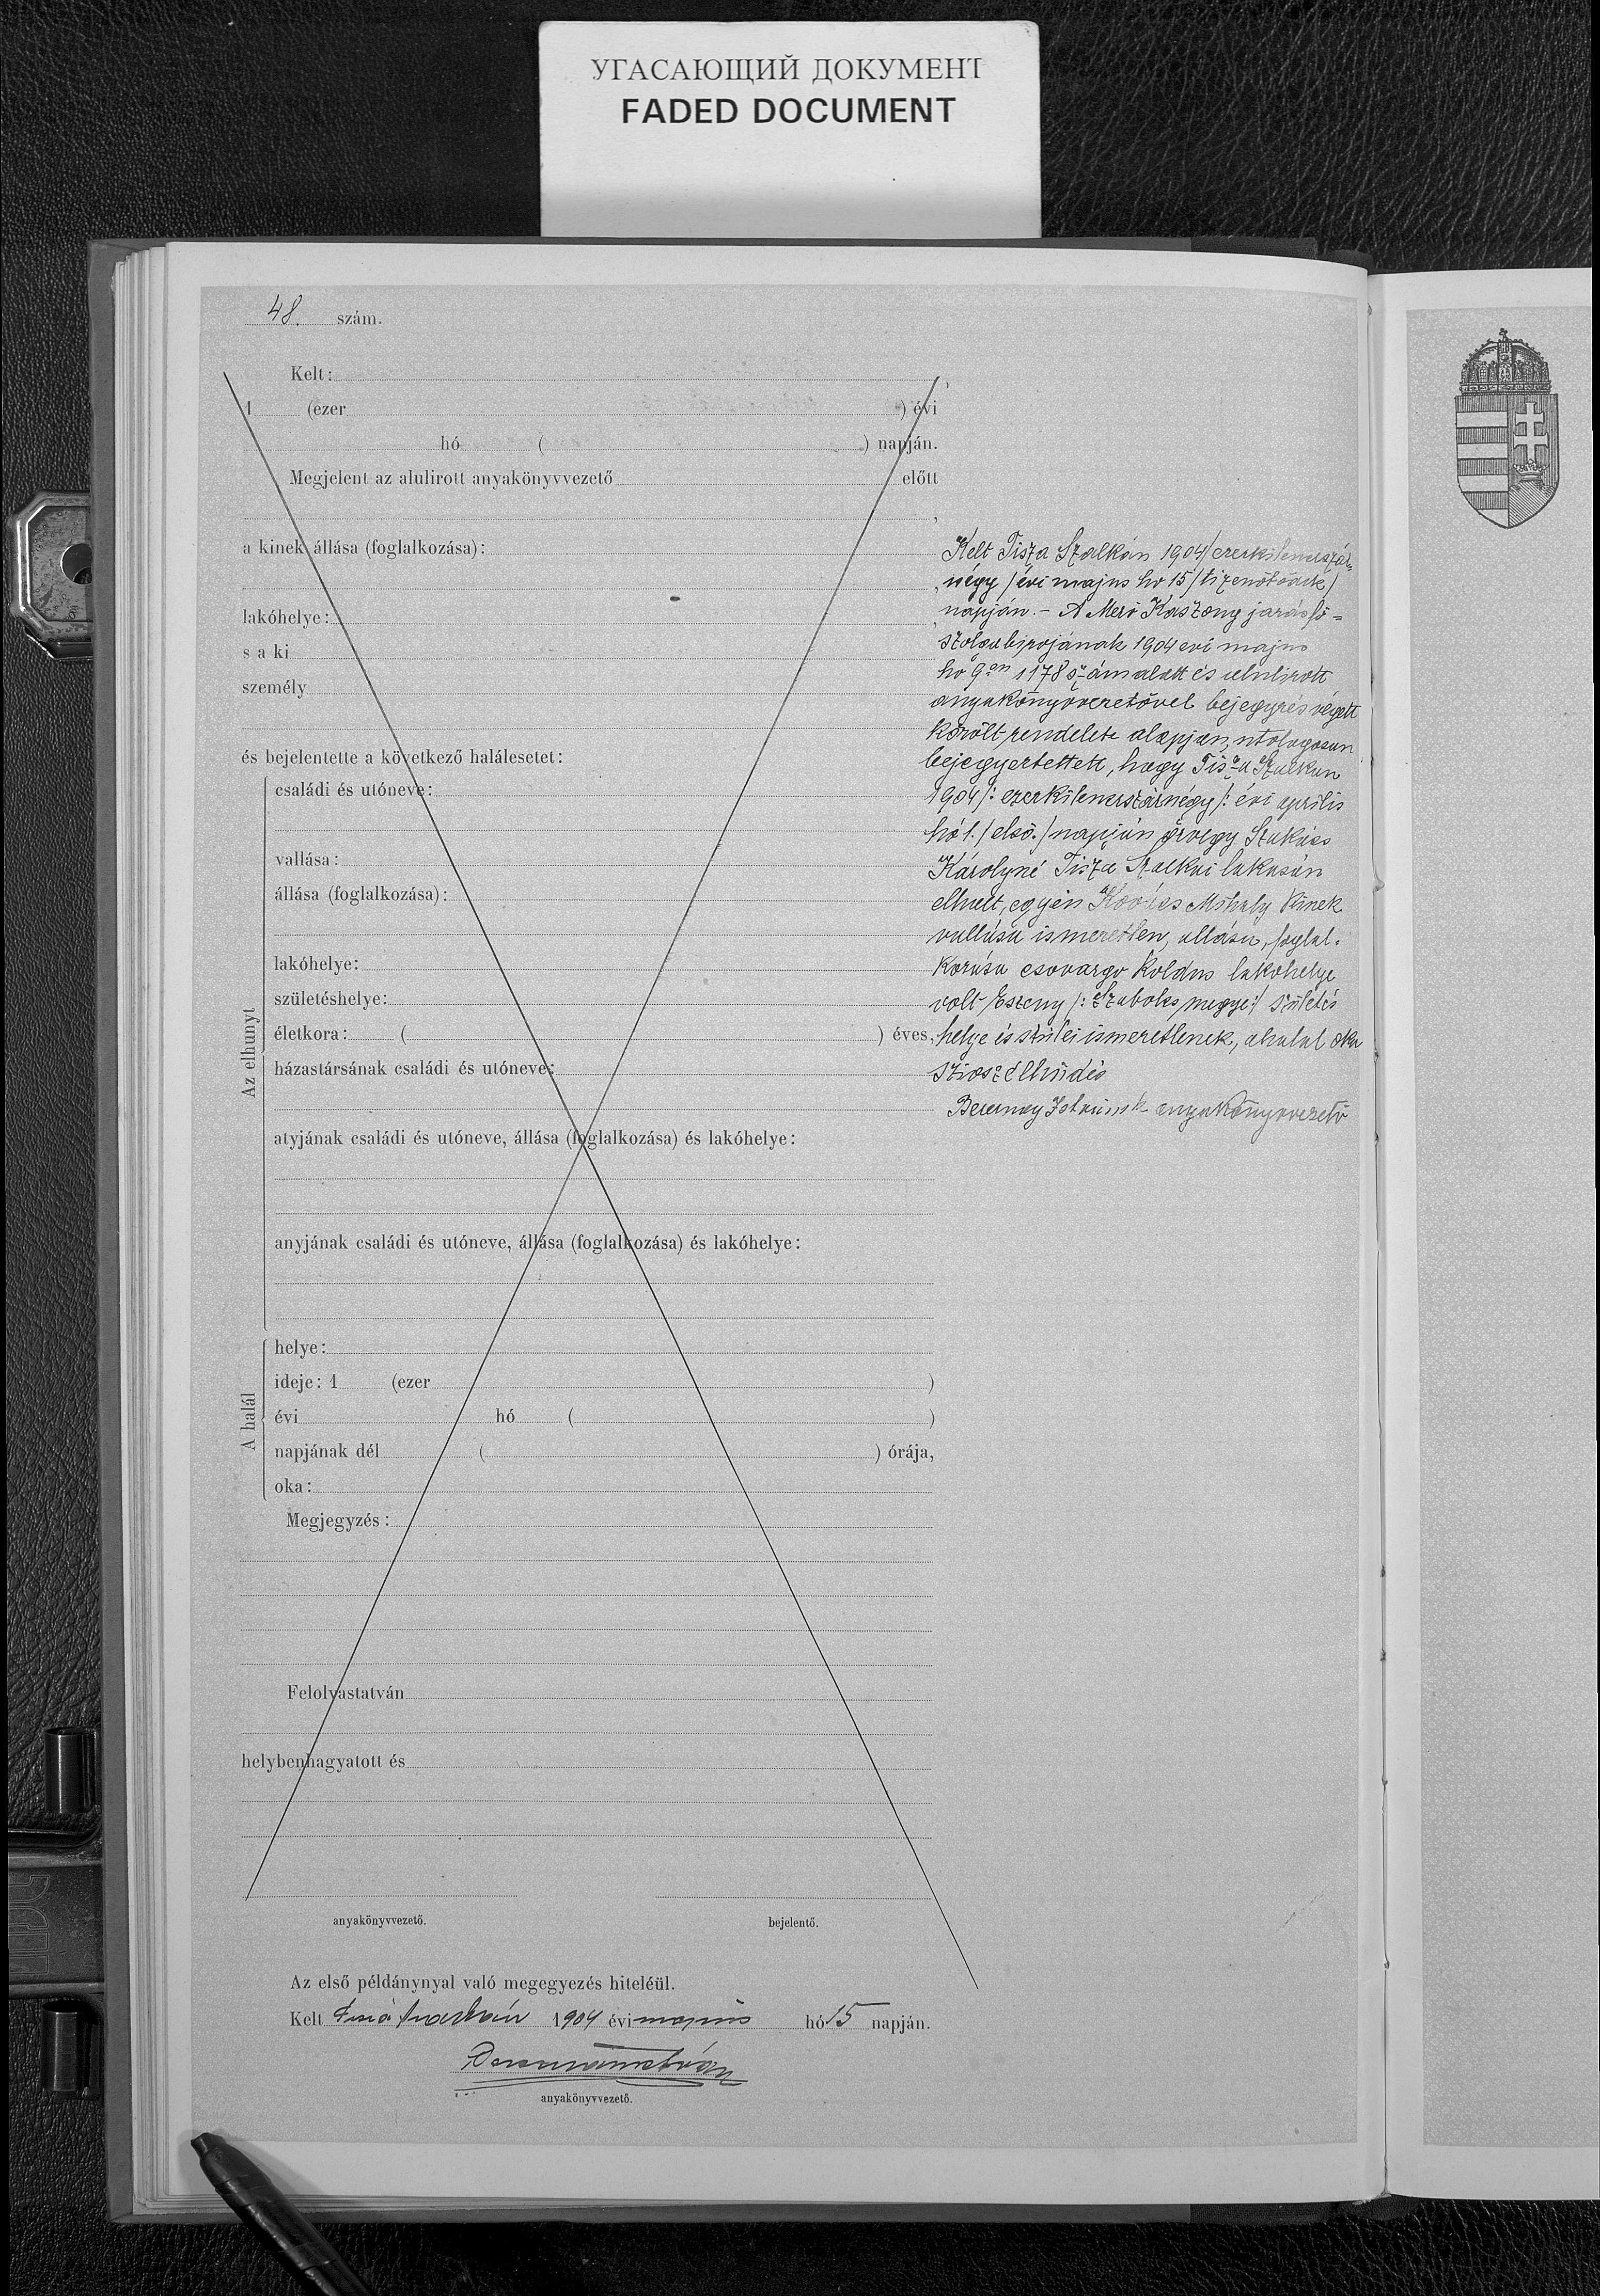 УГАСАЮЩИЙ ДОКУМЕНТ
FADED DOCUMENT
48. szám.
Kelt:
1 (ezer ) évi
hó ( ) napján.
Megjelent az alulirott anyakönyvvezető előtt
a kinek állása (foglalkozása):
lakóhelye:
s a ki
személy
és bejelentette a következő halálesetet:
Az elhunyt
családi és utóneve:
vallása:
állása (foglalkozása):
lakóhelye:
születéshelye:
életkora: ( ) éves,
házastársának családi és utóneve:
atyjának családi és utóneve, állása (foglalkozása) és lakóhelye:
anyjának családi és utóneve, állása (foglalkozása) és lakóhelye:
A halál
helye:
ideje: 1 (ezer )
évi hó ( )
napjának dél ( ) órája,
oka:
Megjegyzés:
Felolvastatván
helybenhagyatott és
anyakönyvvezető. bejelentő.
Kelt Tisza Szalkán 1904/ezerkilenczszáz
négy/évi majus hó 15/tizenötödik/
napján. – A Mező Kaszony járás fő=
szolgabirojának 1904 evi majus
hó 9én 1178 szám alatt és alulirott
anyakönyvvezetővel bejegyzés végett
közölt rendelete alapjan, utologosan
bejegyeztetett, hogy Tisza Szalkan
1904/: ezerkilenczszáznégy/: évi április
hó 1. /első./ napján özvegy Szakács
Károlyné Tisza Szalkai lakásán
elhalt, egyén Kovács Mihaly kinek
vallása ismeretlen, allása, foglal.
kozása csavargo koldus lakohelye
volt Eszeny /: Szabolcs megye:/ születés
helye és szülei ismeretlenek, a halal oka
Szivszélhüdés
István anyakönyvvezető
Az első példánynyal való megegyezés hiteléül.
Kelt Tisza Szalkán 1904 évi majus hó 15 napján.
István
anyakönyvvezető.